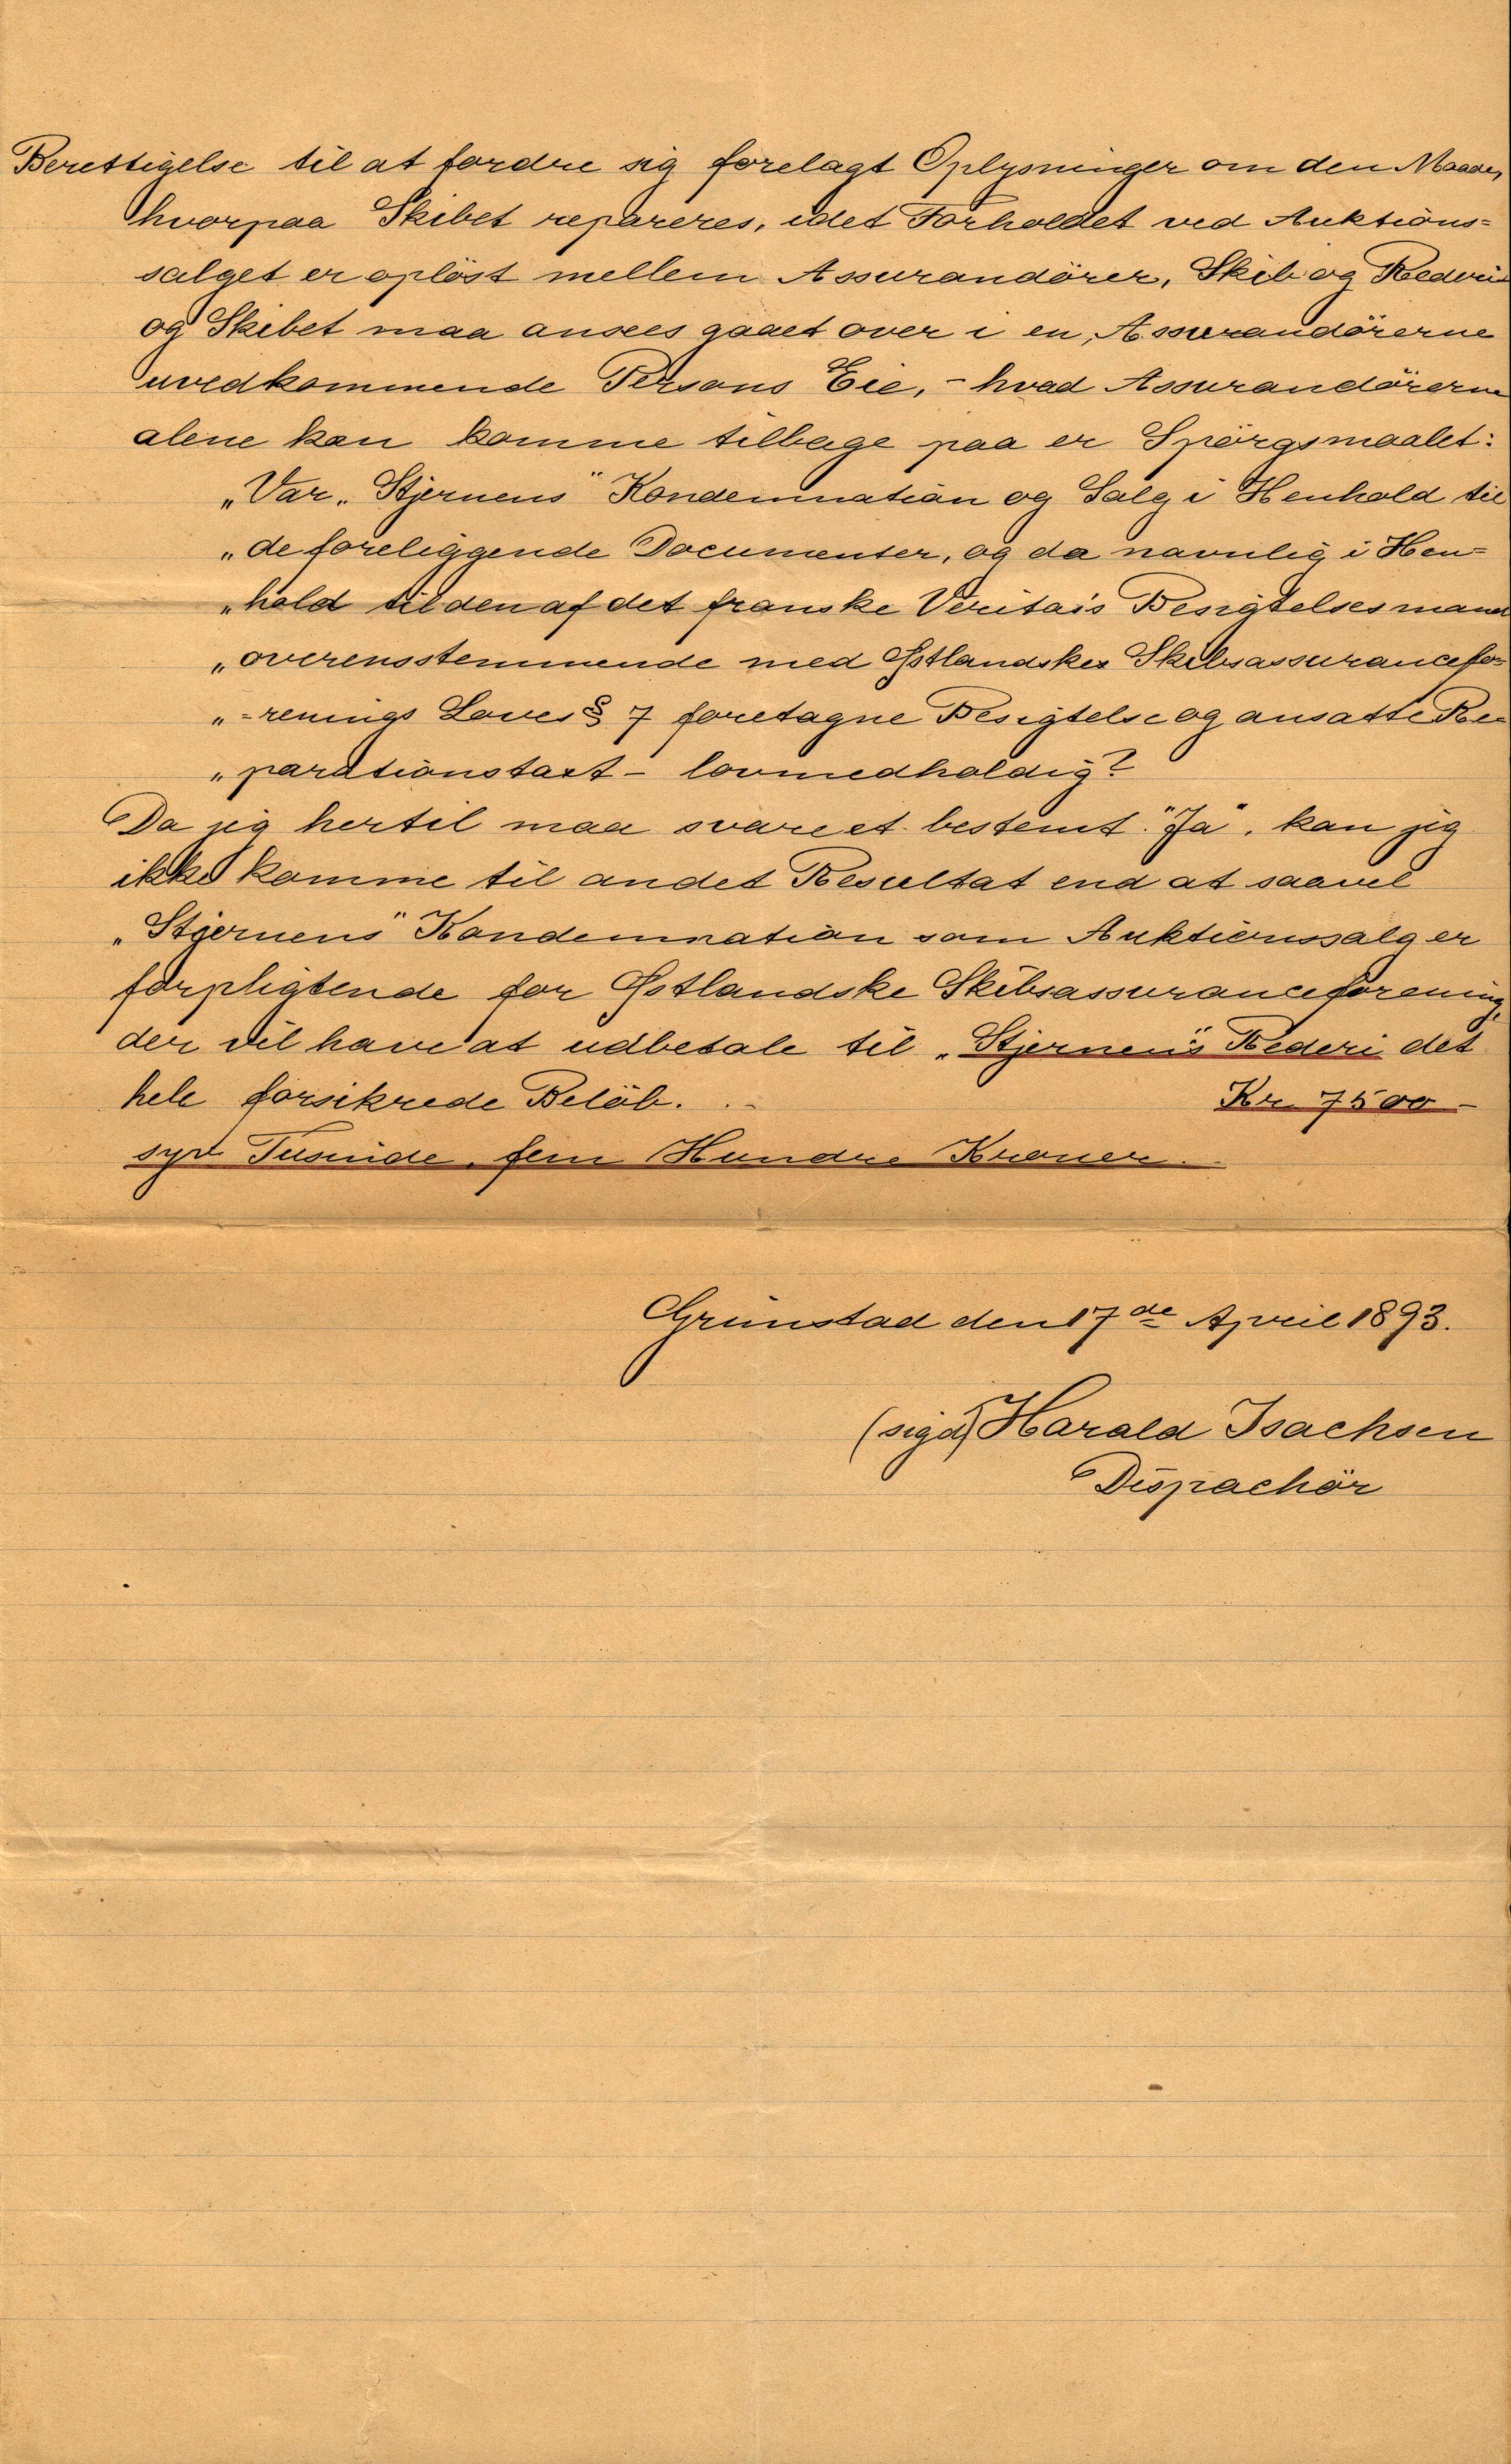 Berettigelse til at fordre sig forelagt Oplysninger om den Maade,
hvorpaa Skibet repareres, idet Forholdet ved Auktions=
salget er oplöst mellem Assurandörer, Skib og Rederi
og Skibet maa ansees gaaet over i en, Assurandörerne
uvedkommende Persons Eie, - hvad Assurandörerne
alene kan komme tilbage paa er Spörgsmaalet:
„Var „Stjernens" Kondemnation og Salg i Henhold til
„de foreliggende Documenter, og da navnlig i Hen=
„hold til den af det franske Veritas's Besigtelsesmand
„overensstemmende med Østlandske Skibsassurancefo=
„=renings Loves § 7 foretagne Besigtelse og ansatte Re=
„parationstaxt - lovmedholdig?
Da jeg hertil maa svare et bestemt "Ja", kan jeg
ikke komme til andet Resultat end at saavel
„Stjernens" Kondemnation som Auktionssalg er
forpligtende for Østlandske Skibsassuranceforening,
der vil have at udbetale til „Stjernen"s Rederi det
hele forsikrede Belöb. . - Kr. 7500 -
syv Tusinde, fem Hundre Kroner. -
Grimstad den 17de April 1893.
(sigd) Harald Isachsen
Dispachör